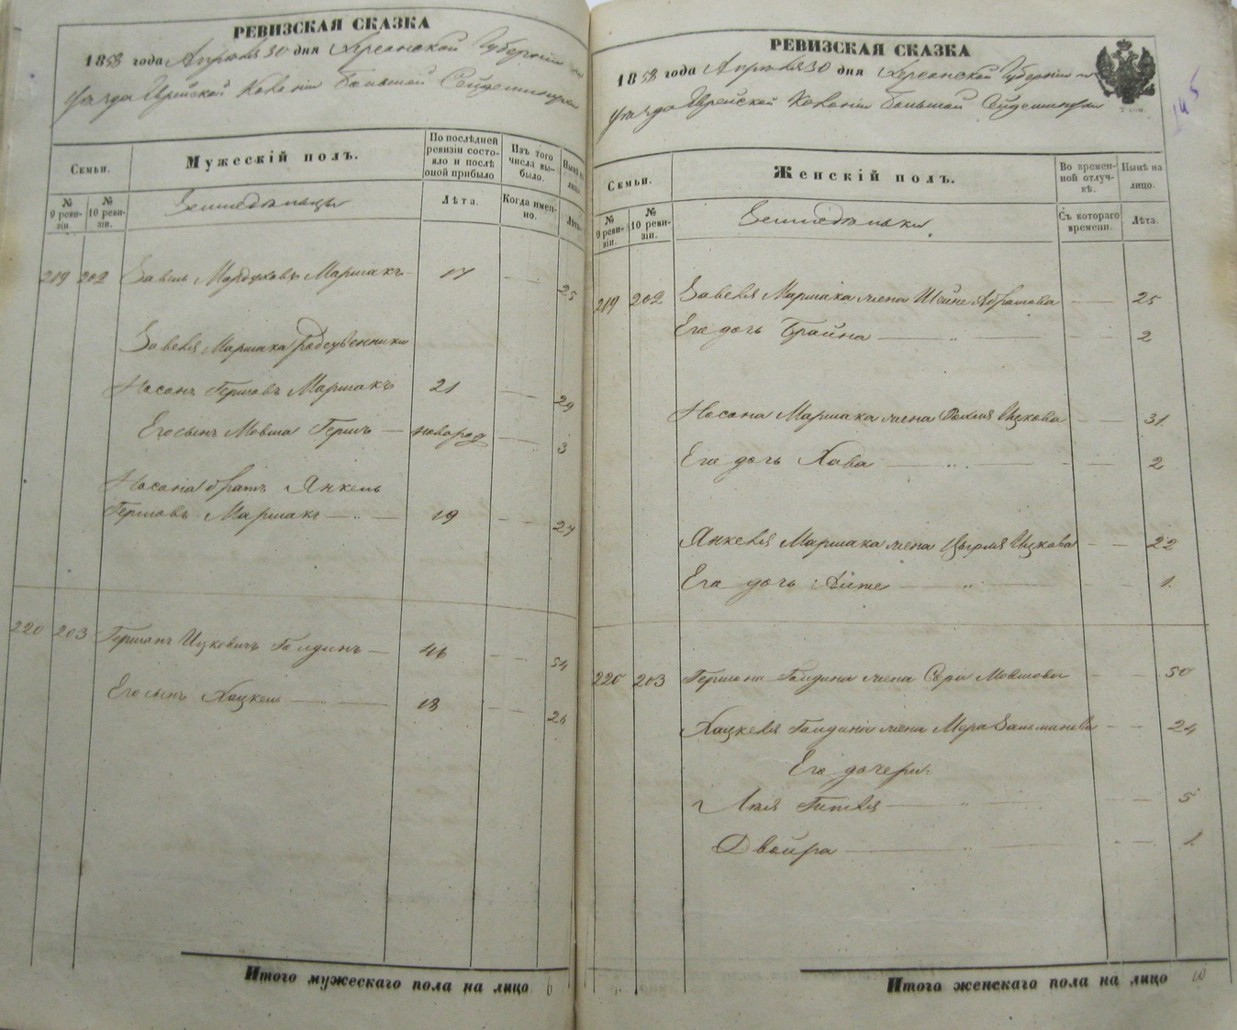 РЕВИЗСКАЯ СКАЗКА
1858 года Апреля 30 дня Херсонской Губернии
уезда Еврейской Колонии Большой Сейдеминухи
Семьи.
Мужескій полъ.
По послѣдней ревизіи состояло и послѣ оной прибыло
Изъ того числа выбыло.
Нынѣ на
№ 9 ревизіи.
№ 10 ревизіи.
Земледельцы
Лѣта.
Когда именно.
Лѣта.
219 202 Завель Мордуховъ Маршакъ 17 25
Завеля Маршака родственники
Носонъ Гершовъ Маршакъ 21 29
Его сынъ Мовша Гершъ новород 3
Носона братъ Янкель
Гершовъ Маршакъ 19 27
220 203 Гершонъ Ицковичъ Голдинъ 46 54
Его сынъ Хацкель 18 26
Итого мужескаго пола на лицо 6
РЕВИЗСКАЯ СКАЗКА
1858 года Апреля 30 дня Херсонской Губерніи
уезда Еврейской Колоніи Большой Сейдеминухи
145
Семьи.
Женскій полъ.
Во временной отлучкѣ.
Нынѣ на лицо.
№ 9 ревизіи.
№ 10 ревизіи.
Земледельки
Съ котораго времени.
Лѣта.
219 202 Завеля Маршака жена Шейне Абрамова 25
Его дочь Брайна 2
Носона Маршака жена Рахля Ицкова 31
Его дочь Хава 2
Янкеля Маршака жена Ицкова 22
Его дочь 1
220 203 Гершона Голдина жена Сора Мовшова 50
Хацкеля Голдина жена Мера Зальманова 24
Его дочери:
Гитля 5
Двойра 1
Итого женскаго пола на лицо 10